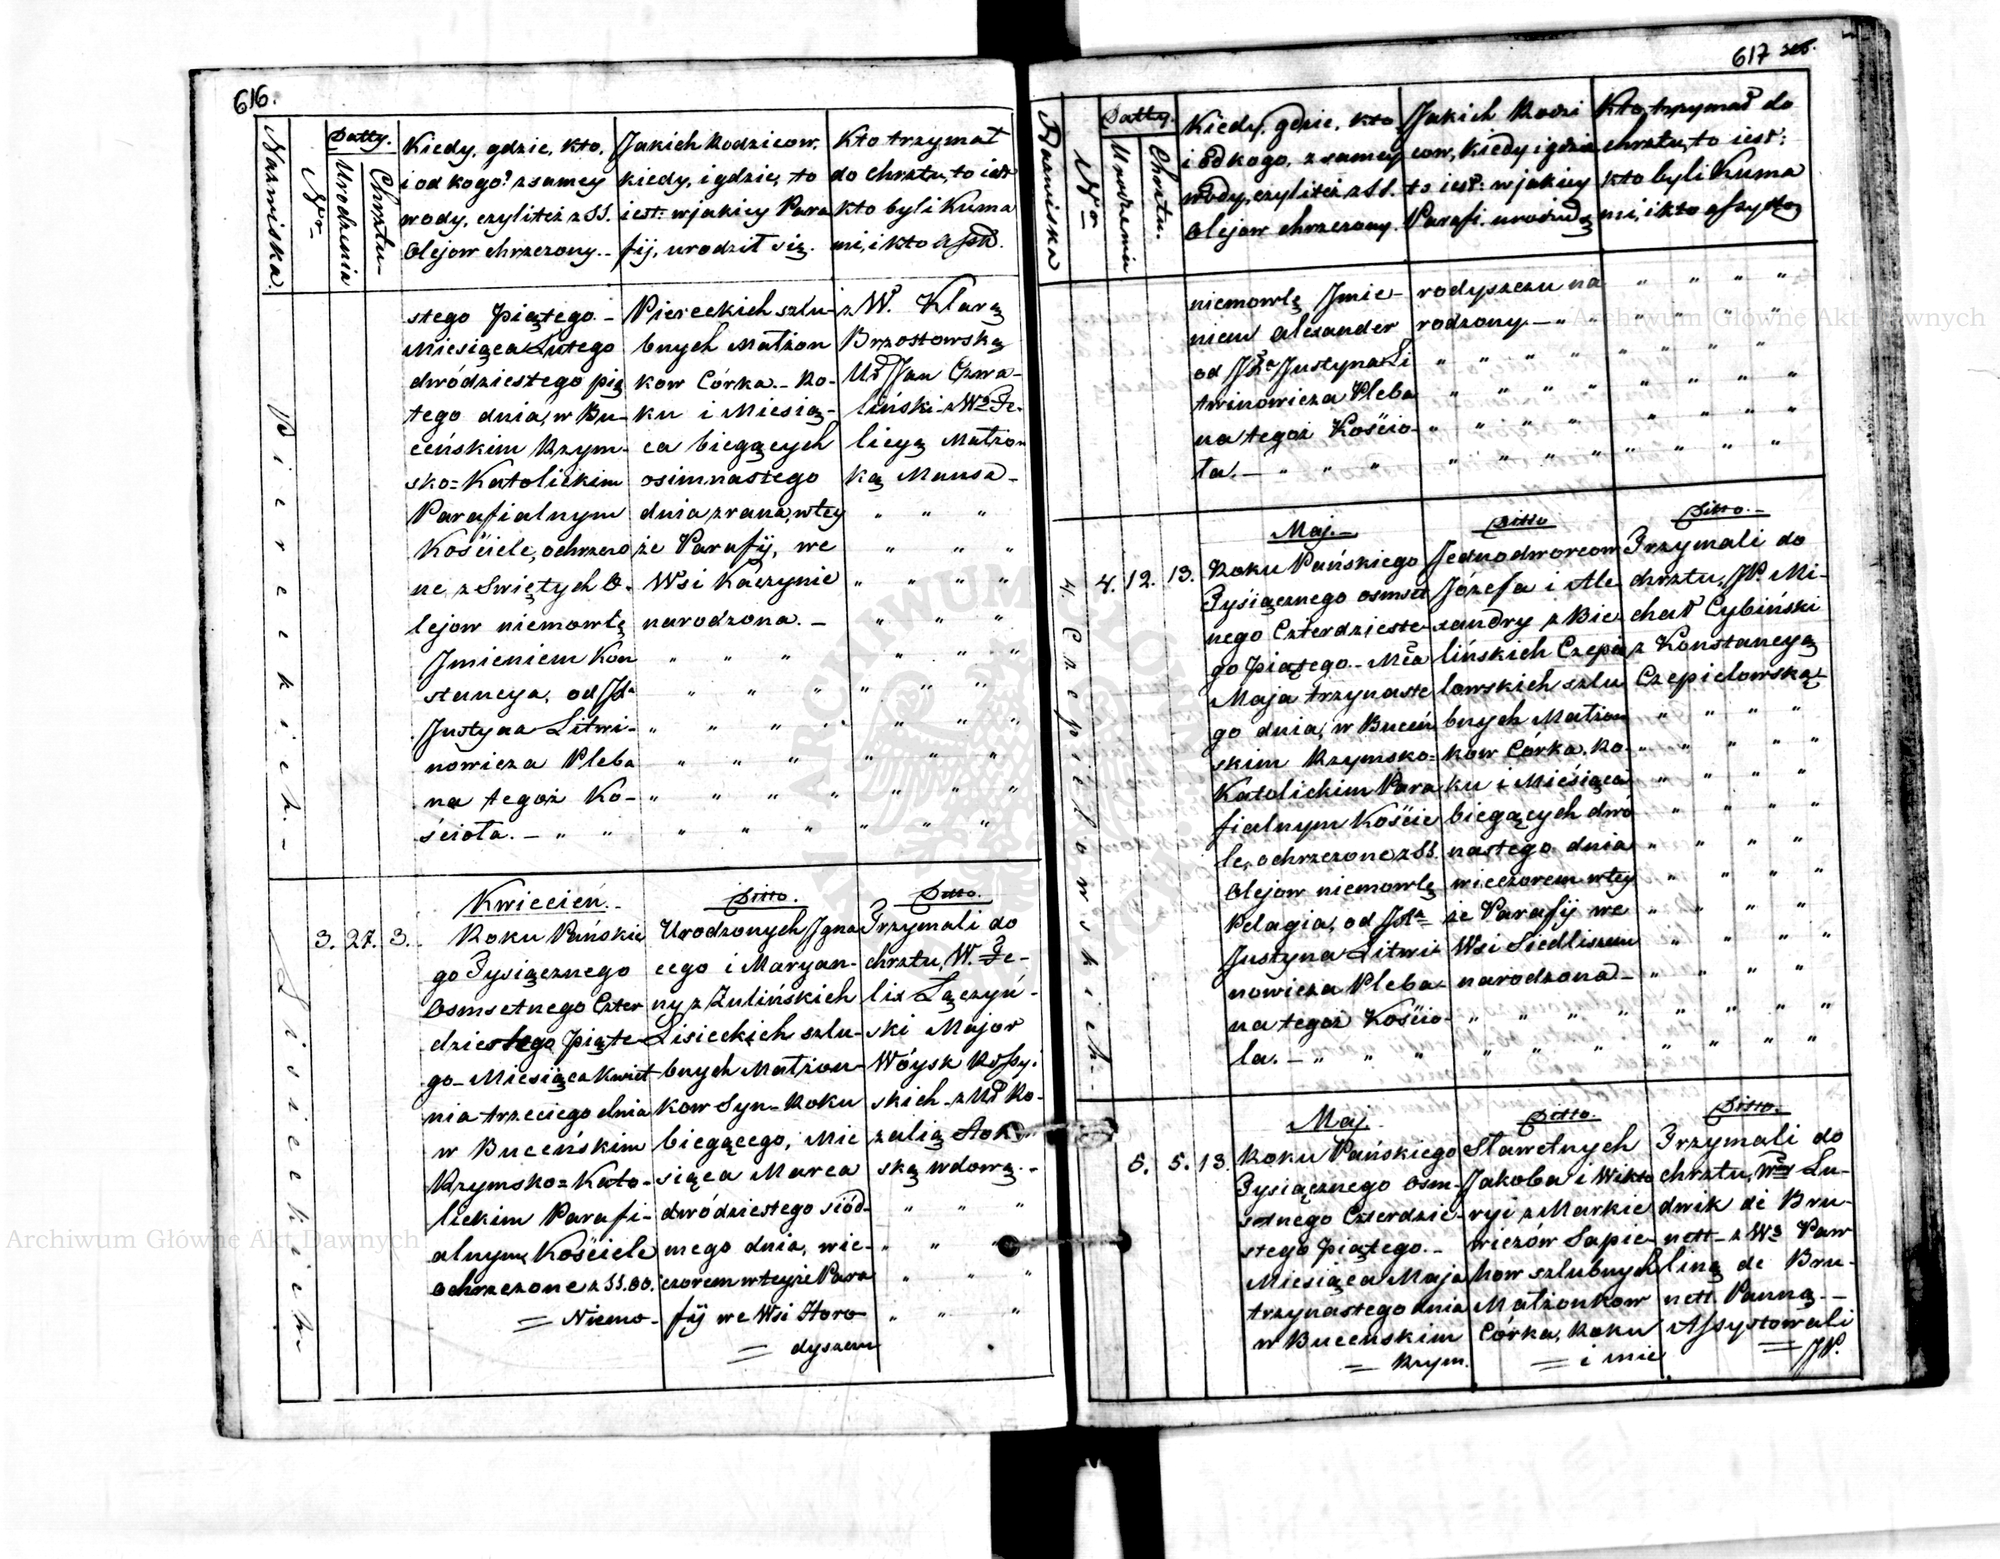 616.
Nazwiska.
Nro
Datty.
Urodzenia
Chrztu
Kiedy, gdzie, kto,
i od kogo? z samey
wody, czyliteż z SS.
Olejow chrzczony.
Jakich Rodzicow,
kiedy, i gdzie, to
iest: w jakiey Para
fij, urodził się.
Kto trzymał
do chrztu, to iest
kto byli Kuma
mi, i kto assyst.
Piereckich.
stego piątego.
Miesiąca Lutego
dwódziestego pią
tego dnia, w Bu-
ceńskim Rzym-
sko=Katolickim
Parafialnym
Kościele, ochrzczo
ne, z Swiętych O-
lejow niemowlę
Jmieniem Kon
stancya, od JXa
Justyna Litwi-
nowicza Pleba
na tegoż Ko-
ścioła. - " "
Piereckich szlu-
bnych Małżon
kow Córka. - Ro-
ku i Miesią-
ca biegących
osimnastego
dnia z rana, w tey
że Parafij, we
Wsi Kaczynie
narodzona. -
z W. Klarą
Brzostowską
Uł Jan Czwa-
liński z Wą Fe-
licyą Małżon
ką Mansa-
Lisieckich
3. 27. 3.
Kwiecień.
Roku Pańskie
go Tysiącznego
Osmsetnego Czter
dziestego piąte
go - Miesiąca Kwiet
nia trzeciego dnia
w Buceńskim
Rzymsko=Kato-
lickim Parafi-
alnym Kościele
ochrzczone z SS.OO.
= Niemo-
Ditto.
Urodzonych Jgna
cego i Maryan-
ny z Zulińskich
Lisieckich szlu-
bnych Małżon-
kow Syn - Roku
biegącego, Mie
siąca Marca
dwódziestego siód-
mego dnia, wie-
czorem w teyże Para
fij we Wsi Horo
= dyszczu
Ditto.
Trzymali do
chrztu, W. Fe-
lix Łączyń-
ski Major
Wóysk Rossyi-
skich - z Uł Ro-
zalią
ską wdową. -
617
Nazwiska
Nro
Datty.
Urodzenia
Chrztu.
Kiedy, gdzie, kto
i od kogo, z samey
wody, czyliteż z SS.
Olejow chrzczony.
Jakich Rodzi
cow, kiedy i gdzie
to iest: w jakiey
Parafi. urodził się
Kto, trzymał do
chrztu, to iest:
kto byli Kuma
mi, i kto assystow
niemowlę Jmie-
niem Alexander
od JXa Justyna Li
twinowicza Pleba
na tegoż Kościo-
ła. - " " "
rodyszczu na
rodzony. - " "
4. Czepielowskich.
4. 12. 13.
Maj. -
Roku Pańskiego
Tysiącznego osmset
nego Czterdzieste
go piątego. - Mca
Maja trzynaste
go dnia, w Buceń
skim Rzymsko=
Katolickim Para
fialnym Koście
le, ochrzczone z SS.
Olejow niemowlę
Pelagia, od JXa
Justyna Litwi-
nowicza Pleba-
na tegoż Kościo-
la. - " " "
Ditto
Jednodworcow
Józefa i Ale
xandry z Bie
lińskich Czepie
lowskich szlu
bnych Małżon
kow Córka. Ro-
ku i Miesiąca
biegących dwó
nastego dnia
wieczorem w tey
że Parafij we
Wsi Siedliszczu
narodzona -
Ditto. -
Trzymali do
chrztu, JP. Mi-
chał Cybiński
z Konstancyą
Czepielowską
5. 5. 13.
Maj.
Roku Pańskiego
Tysiącznego osm-
setnego Czterdzie-
stego piątego. -
Miesiąca Maja
trzynastego dnia
w Buceńskim
= Rzym.
Ditto.
Sławetnych
Jakoba i Wikto
ryi z Markie
wiczów Sapie-
how szlubnych
Małżonkow
Córka, Roku
= i mie
Ditto.
Trzymali do
chrztu, Wny Lu-
dwik de Bru-
nett - z Wą Paw
liną de Bru-
nett. Panną. -
Assystowali
= JP.
Archiwum Główne Akt Dawnych
Archiwum Główne Akt Dawnych